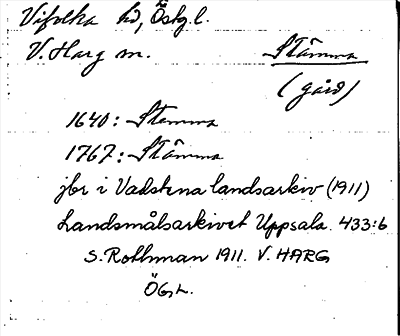 Vifolka hd, Östg.l.
V. Harg sn. Stämma
(gård)
1640: Stemma
1767: Stämma
jbr i Vadstena landsarkiv (1911)
Landsmålsarkivet Uppsala. 433:6
S. Rothman 1911. V. HARG
ÖGL.